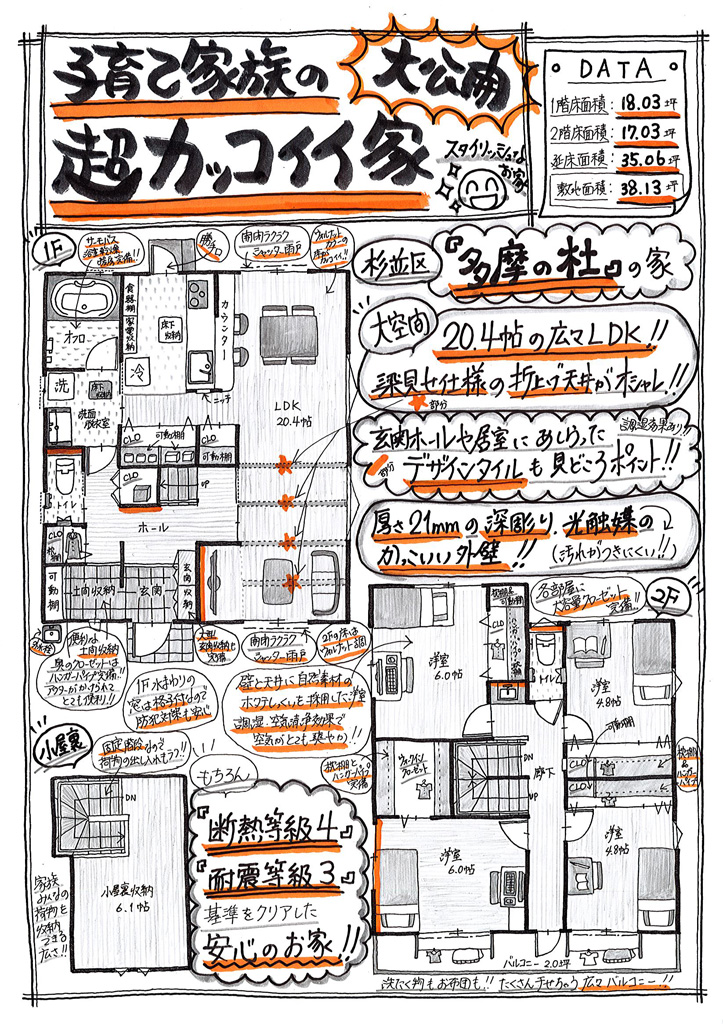 子育て家族の
大公開
超カッコイイ家
スタイリッシュな
お家
DATA
1階床面積：18.03坪
2階床面積：17.03坪
延床面積：35.06坪
敷地面積：38.13坪
1F
サーモバス
浴室乾燥
暖房完備!!
勝手口
南向ラクラク
シャッター雨戸
ウォルナットカラーの
床がカッコイイ!!
杉並区
『多摩の杜』の家
大空間
20.4帖の広々LDK!!
漆喰仕様の折上げ天井がオシャレ!!
部分
玄関ホールや居室にあしらった
調湿効果あり
部分
デザインタイルも見どころポイント!!
厚さ21mmの深彫り、光触媒の
かっこいい外壁!!
(汚れがつきにくい!!)
オフロ
食器棚
家電収納
床下
収納
冷
カウンター
ニッチ
洗
床下
収納
洗面
脱衣室
LDK
20.4帖
CLO
可動棚
CLO
可動棚
CLO
UP
トイレ
ホール
CLO
枕棚
可動棚
土間収納
玄関
玄関
収納
水栓
便利な
土間収納
奥のクローゼットは
ハンガーパイプ完備!!
アウターがかけられて
とても便利!!
大型
玄関収納も
完備
南向ラクラク
シャッター雨戸
2Fの床は
ウォルナット3国
1F水まわりの
窓は格子付なので
防犯対策も安心
壁と天井に自然素材の
ホタテしっくいを採用した洋室
調湿・空気清浄効果で
空気がとても爽やか!!
各部屋に
大容量クローゼット
完備!!
2F
洋室
6.0帖
枕棚&
可動棚
CLO
ハンガーパイプ
枕棚
トイレ
洋室
4.8帖
可動棚
CLO
CLO
枕棚
&
ハンガーパイプ
枕棚と
ハンガーパイプ
完備
ウォークイン
クローゼット
DN
UP
廊下
洋室
6.0帖
洋室
4.8帖
バルコニー 2.0坪
洗たく物もお布団も!!たくさん干せちゃう広々バルコニー!!
小屋裏
固定階段なので
荷物の出し入れもラク!!
DN
小屋裏収納
6.1帖
家族
みんなの
荷物を
収納
できる
広さ!!
もちろん
『断熱等級4』
『耐震等級3』
基準をクリアした
安心のお家!!